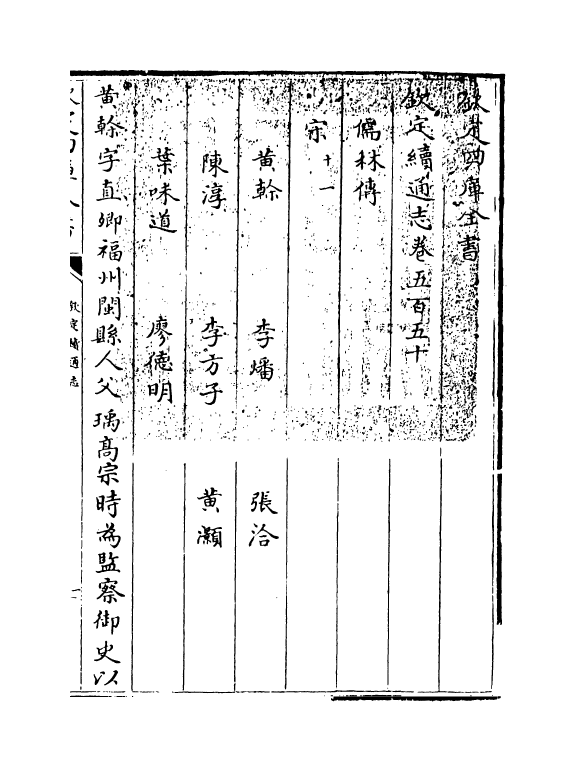 欽定四庫全書
欽定續通志卷五百五十
儒林傳
宋十一
黄榦 李燔 張洽
陳淳 李方子 黄灝
葉味道 廖德明
黄榦字直卿福州閩縣人父瑀高宗時為監察御史以
欽定續通志